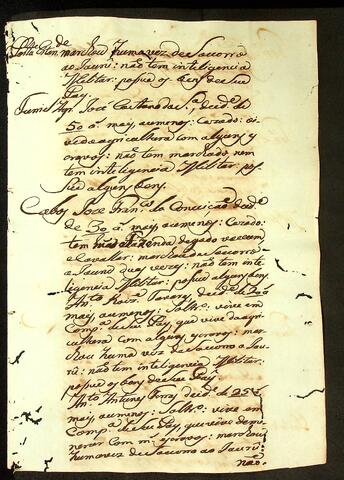 marchou huma vez de Socorro
ao Jaurú: não tem inteligencia
Militar: possue os bens de seu
Pay.
José Caetano da S.ª, de id.e de
50 a.s mais, ou menos: Cazado: vi
ve de agricultura com alguns es
cravos: não tem marchado nem
tem inteligencia Militar: pos
sue alguns bens.
Cabos José Fran.co da Conceição de id.e
de 30 a.s mais, ou menos: Cazado:
tem fazenda de gado vacum,
e Cavalar: marchou de Socorro
a Jaurú duas vezes: não tem inte
ligencia Militar: possue alguns bens.
Ant.o Tavares, de id.e de 20 a.s
mais, ou menos: Solt.o: vive em
Comp.a de seu Pay, que vive da agri
cultura com alguns escravos: mar
chou huma vez de Socorro a Jau
rú: não tem inteligencia Militar:
possue os bens de seu Pay.
Ant.o Antunes de id.e de 25 a.s
mais, ou menos: Solt.o: vive em
Comp.a de seu Pay, que vive de mi
nerar com m.s escravos: marchou
huma vez de Socorro ao Jaurú:
não